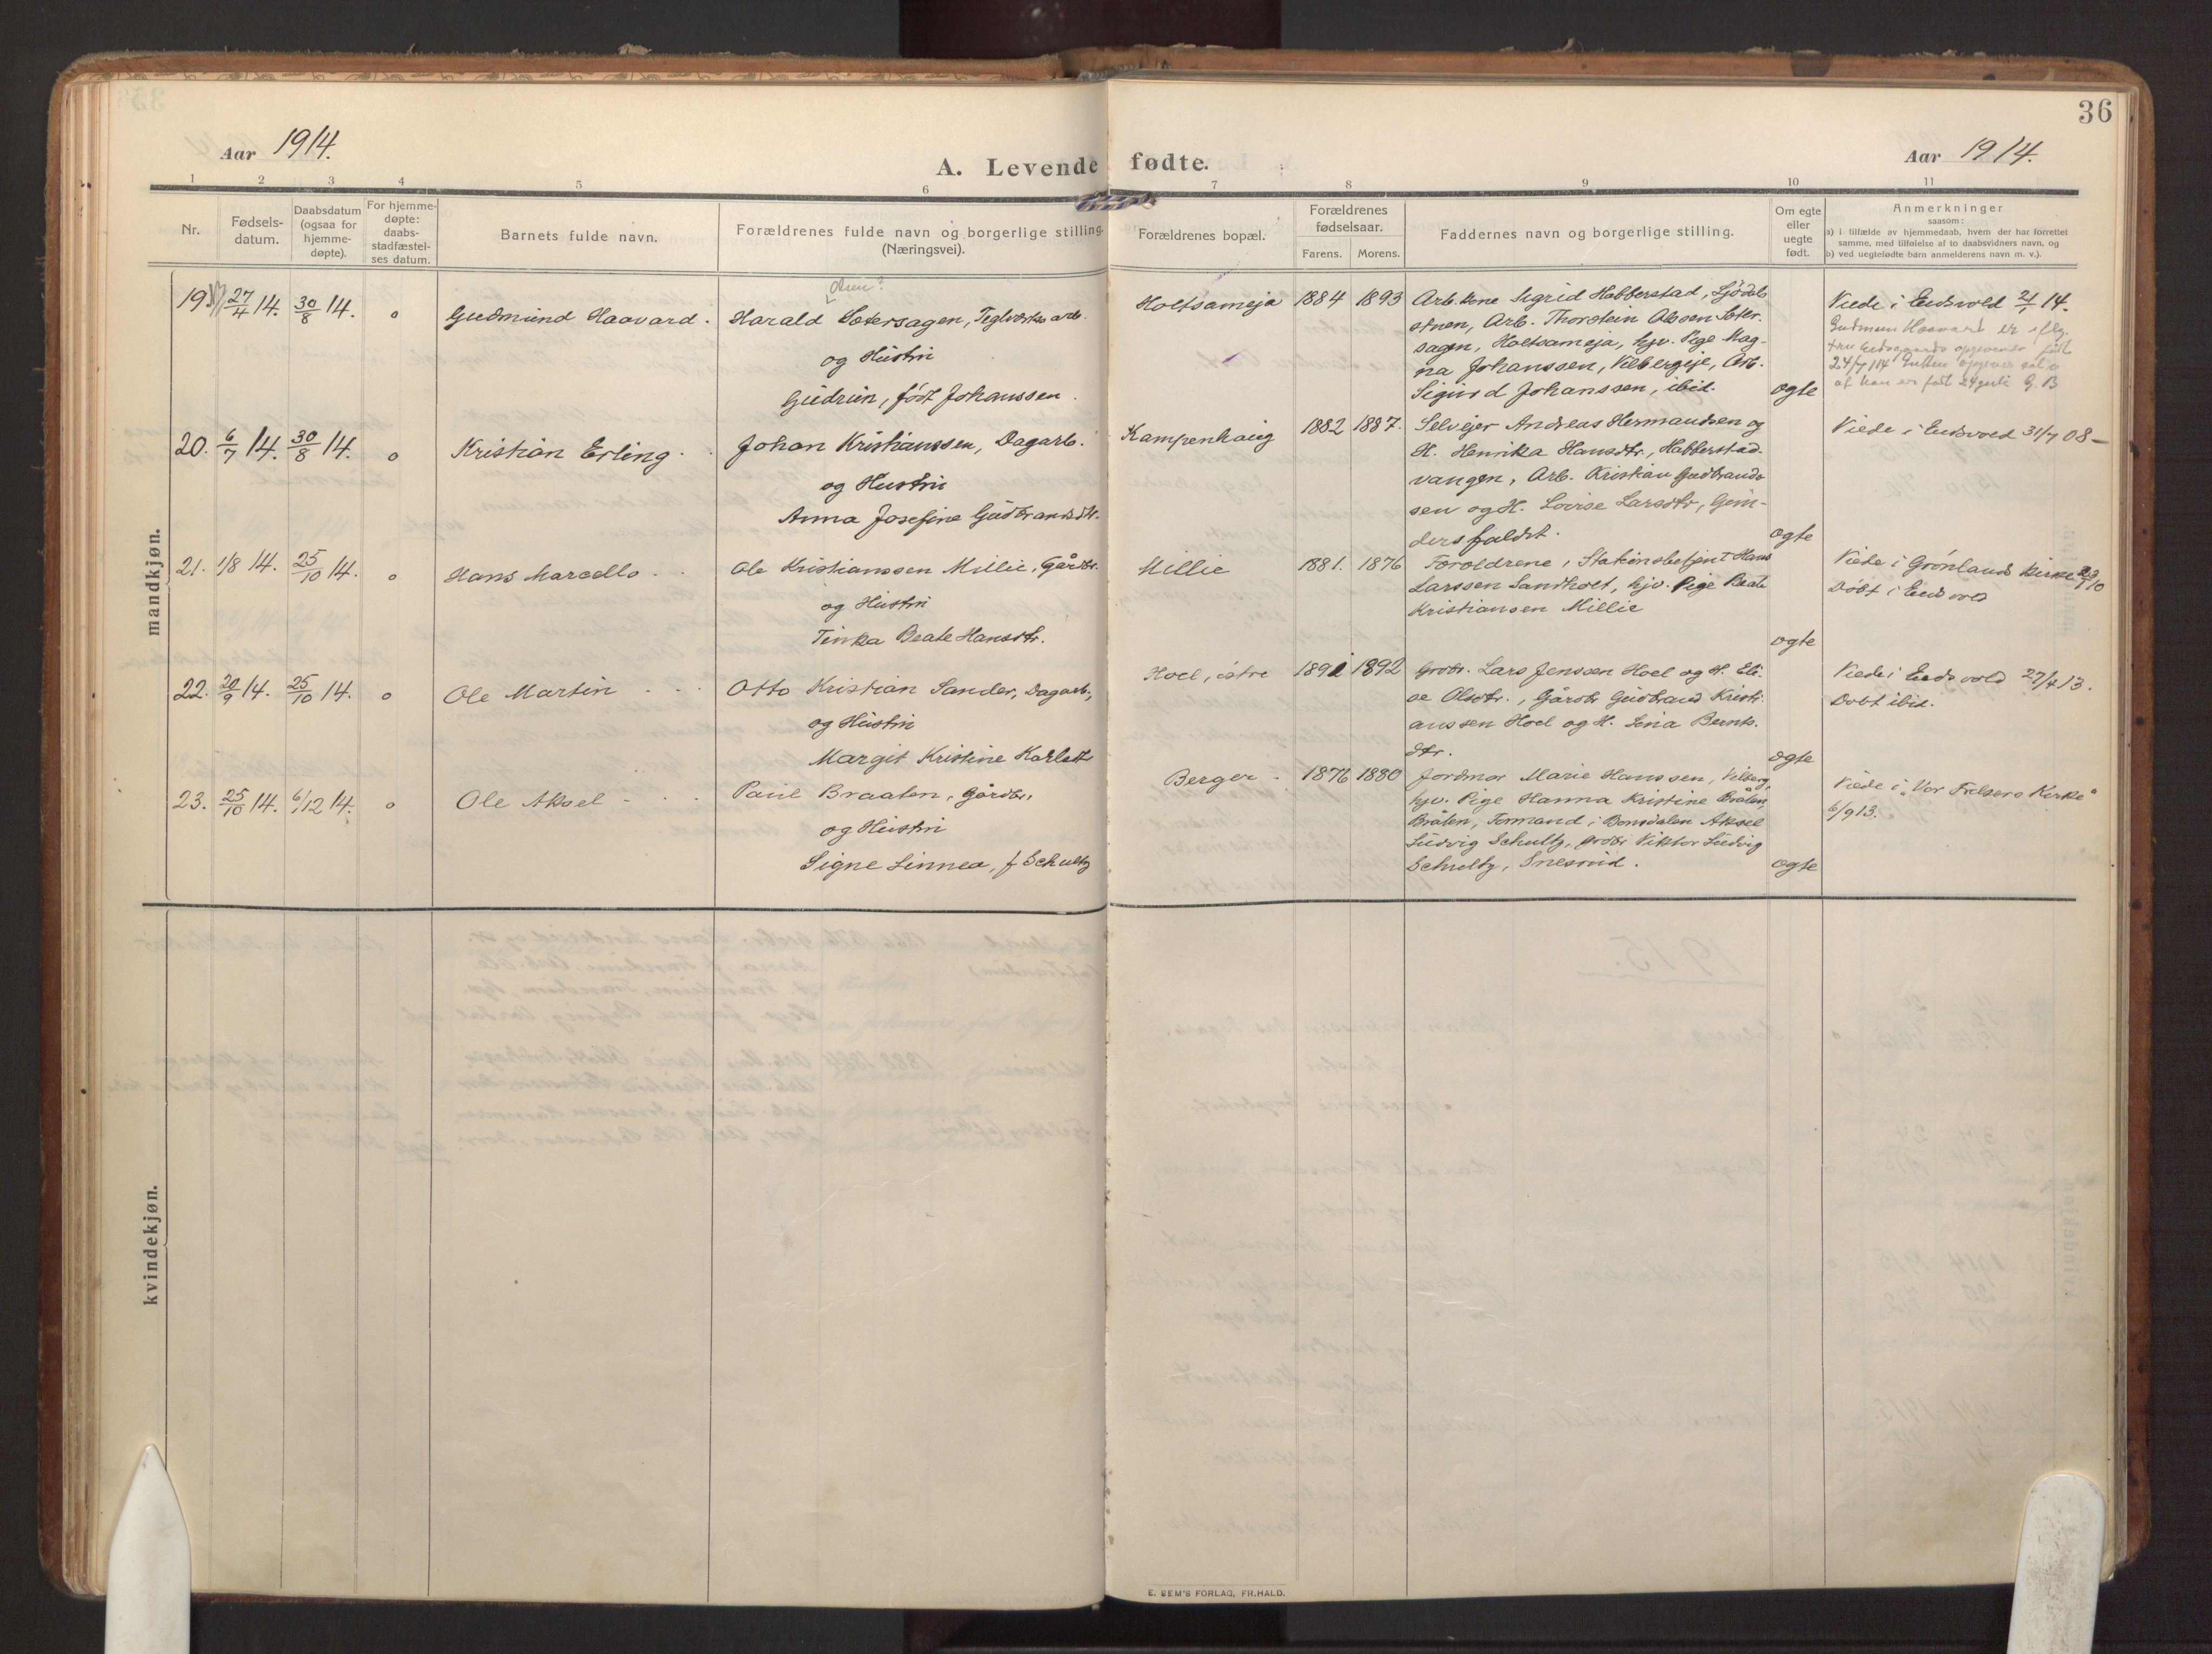 36
Aar 1914.
A. Levende fødte.
Aar 1914.
1 2 3 4 5 6 7 8 9 10 11
Nr.
Fødsels-
datum.
Daabsdatum
(ogsaa for
hjemme-
døpte).
For hjemme-
døpte:
daabs-
stadfæstel-
ses datum.
Barnets fulde navn.
Forældrenes fulde navn og borgerlige stilling.
(Næringsvei).
Forældrenes bopæl.
Forældrenes
fødselsaar.
Farens. Morens.
Faddernes navn og borgerlige stilling.
Om egte
eller
uegte
født.
Anmerkninger
saasom:
a) i tilfælde av hjemmedaab, hvem der har forrettet
samme, med tilføielse af to daabsvidners navn, og
b) ved uegtefødte barn anmelderens navn m. v.).
mandkjøn.
19 27/4 14. 30/8 14. o Gudmund Haavard.
Olsen?
Harald Sætersagen, Teglverks arb.
og Hustru
Gudrun, født Johanssen.
Holtsameja 1884 1893
Arb. kone Sigrid Habberstad,
Arb. Thorstein Olesen Seter-
sagen, Holtsameja, hjv. Pige Mag-
na Johanssen, Vilbergeje, Arb.
Sigurd Johanssen, ibid.
ogte
Viede i Eidsvold 2/1 14.
Gudmun Haavard er iflg.
opgivende født
24/7 114 opgiver
at han er født 24 juli G. B
20. 6/7 14. 30/8 14. o Kristian Erling.
Johan Kristianssen, Dagarb.
og Hustru
Anna Josefine Gudbrandsdtr.
Kampenhaug 1882 1887.
Selvejer Andreas Hermandsen og
H. Henrika Hansdtr, Habberstad-
vangen, Arb. Kristian Gudbrands-
sen og H. Lovise Larsdtr, Gun-
dersfaldet.
ogte
Viede i Eidsvold 31/7 08 —
21. 1/8 14. 25/10 14. o Hans Marcello
Ole Kristianssen Millie, Gårdbr.
og Hustru
Tinka Beate Hansdtr.
Millie 1881. 1876
Foroldrene, Stationsbetjent Hans
Larssen Sandholt, hjv. Pige Beate
Kristiansen Millie
ogte
Viede i Grønlands Kirke
Døbt i Eidsvold
22. 20/9 14. 25/10 14. o Ole Martin
Otto Kristian Sander, Dagarb.,
og Hustru
Margit Kristine Karlsdt
Hoel, østre 1891 1892
Grdbr. Lars Jenssen Hoel og H. Eli-
se Olsdtr., Gårdbr Gudbrand Kristi-
anssen Hoel og H. Lina Bernts-
dtr.
ogte
Viede i Eidsvold 27/4 13.
Døbt ibid.
23. 25/10 14. 6/12 14. o Ole Aksel
Paul Braaten, Gårdbr,
og Hustru
Signe Linnea, f Schultz
Berger 1876 1880
Jordmor Marie Hanssen, Vilberg,
hjv. Pige Hanna Kristine Bråten,
Bråten, Formand i Bønsdalen Aksel
Ludvig Schultz, Grdbr Viktor Ludvig
Schultz,
ogte
Viede i "Vor Frelsers Kirke"
6/9 13.
kvindekjøn.
E. SEM'S FORLAG, FR.HALD.